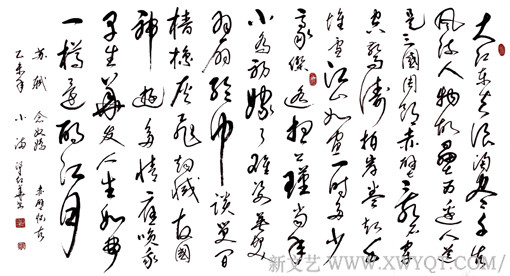 大江东去浪淘尽千古
风流人物故垒西边人道
是三國周郎赤壁乱石穿
空惊涛拍岸卷起千
堆雪江山如画一时多少
豪傑遥想公瑾当年
小乔初嫁了雄姿英发
羽扇纶巾谈笑间
樯橹灰飛烟滅故國
神遊多情应笑我
早生華发人生如梦
一樽還酹江月
苏轼 念奴娇 赤壁怀古
乙未年 小满
新文艺 WWW.XWYQY.COM/